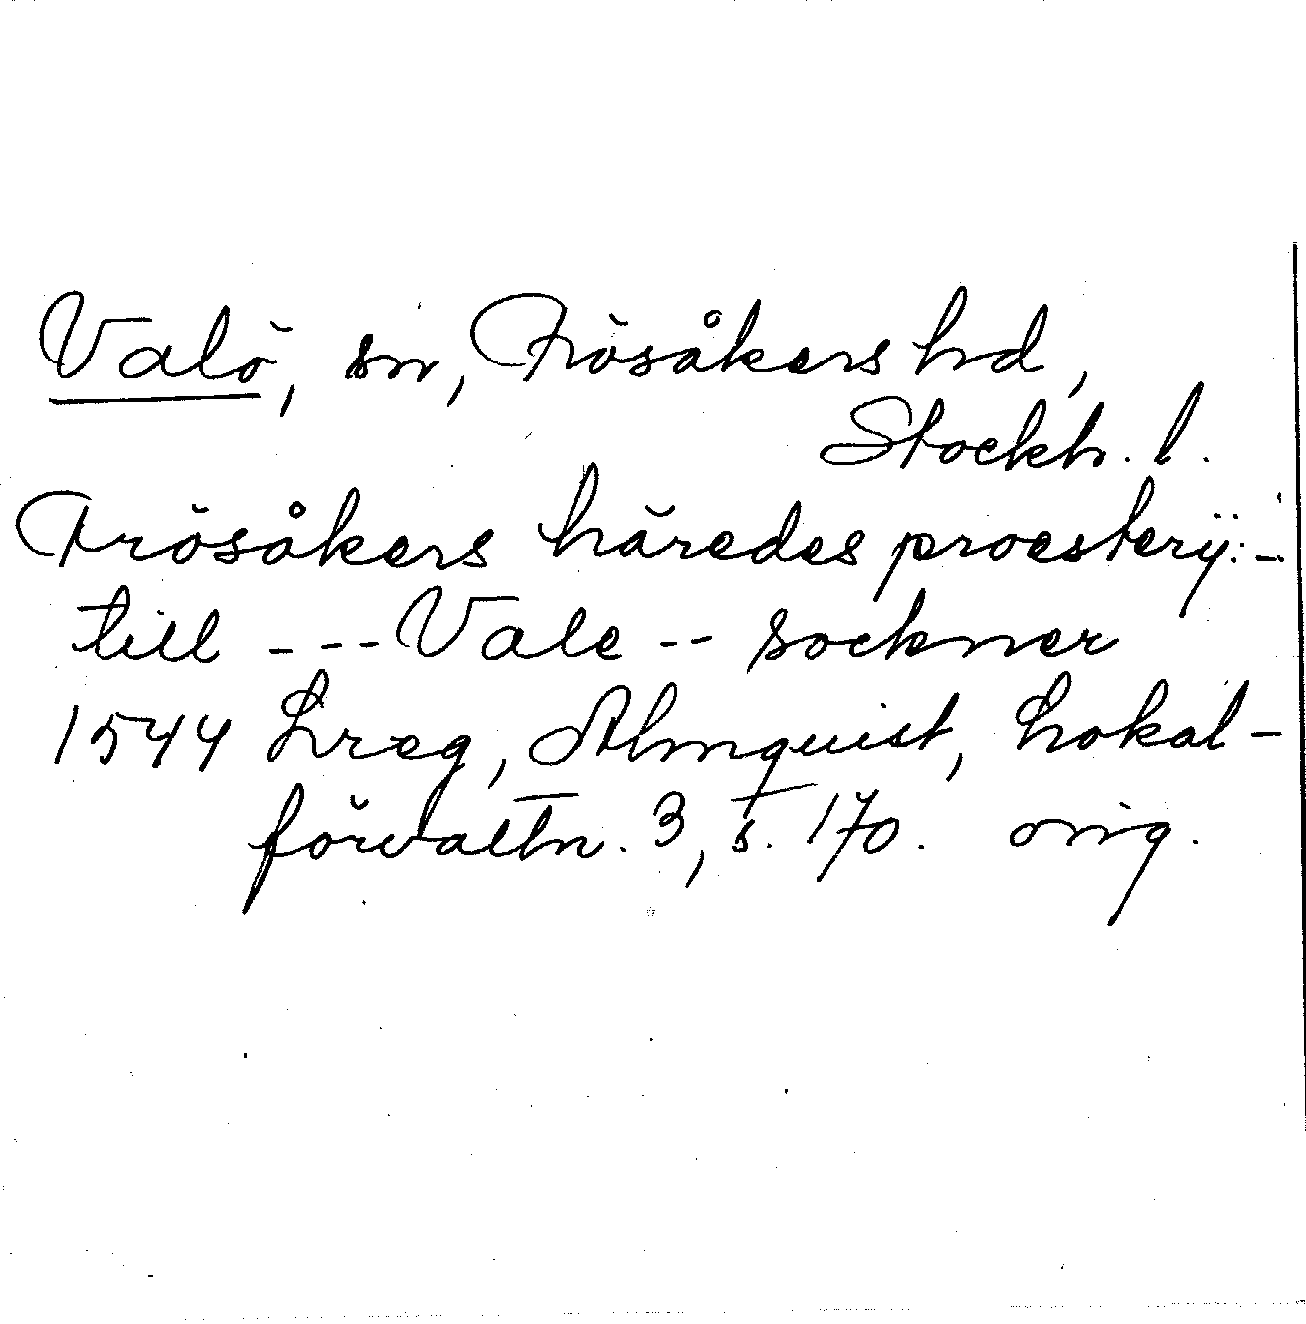 Valö, sn, Frösåkers hd,
Stockh. l.
Frösåkers häredes proesterÿ: -
till --- Vale -- sockner
1544 Lreg, Almquist, Lokal-
förvaltn. 3, s. 170. orig.